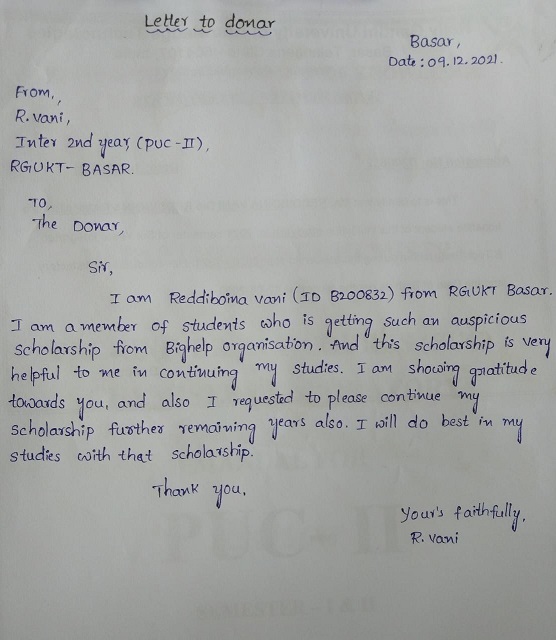 Letter to donar
Basar,
Date : 09.12.2021.
From,
R. vani,
Inter 2nd year, (PUC-II),
RGUKT- BASAR.
TO,
The Donar,
Sir,
I am Reddiboina vani (ID B200832) from RGUKT Basar.
I am a member of students who is getting such an auspicious
scholarship from Bighelp organisation. And this scholarship is very
helpful to me in continuing my studies. I am showing gratitude
towards you, and also I requested to please continue my
scholarship further remaining years also. I will do best in my
studies with that scholarship.
Thank you,
Your's faithfully,
R. vani
PUC- II